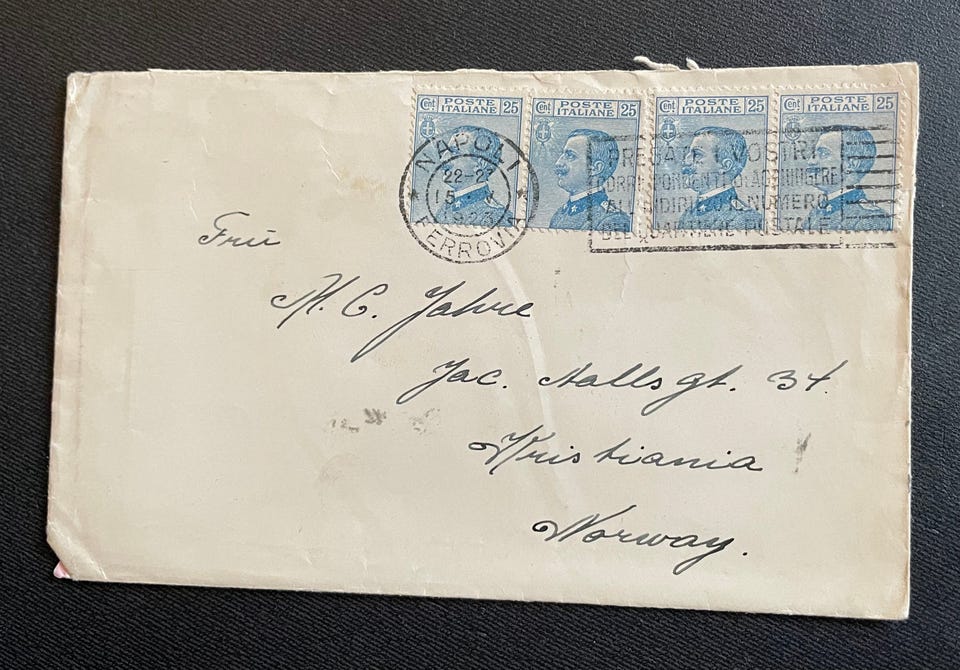 Cent. POSTE ITALIANE 25
Cent. POSTE ITALIANE 25
Cent. POSTE ITALIANE 25
Cent. POSTE ITALIANE 25
NAPOLI
15
1923
FERROVIA
PREGATE I VOSTRI
CORRISPONDENTI DI AGGIUNGERE
ALL'INDIRIZZO IL NUMERO
DEL QUARTIERE POSTALE
Frū
M. C. Jahre
Jac. Aallsgt. 34.
Kristiania
Norway.